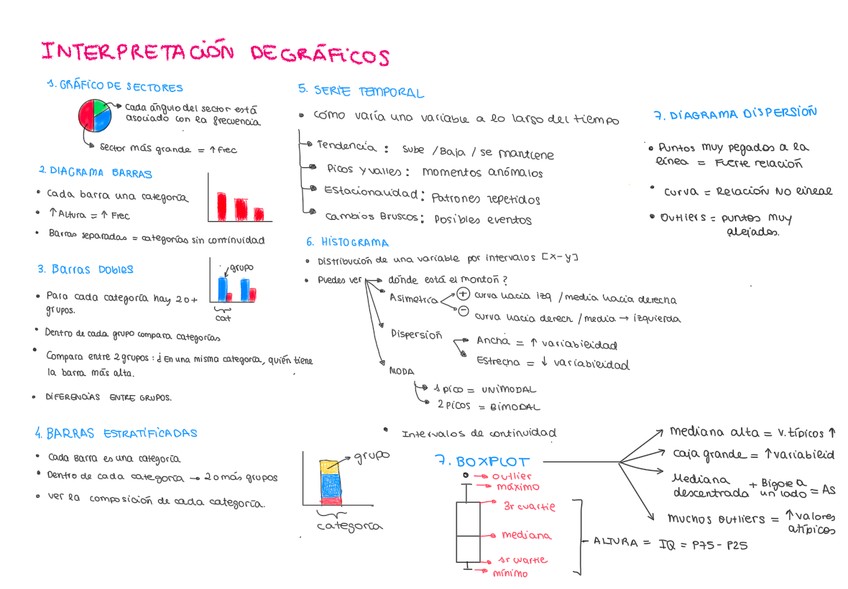 INTERPRETACIÓN DE GRÁFICOS
1. GRÁFICO DE SECTORES
cada ángulo del sector está
asociado con la frecuencia
sector más grande = ↑ Frec
2. DIAGRAMA BARRAS
• Cada barra una categoría
• ↑ Altura = ↑ Frec
• Barras separadas = categorías sin continuidad
3. Barras Dobles
grupo
cat
• Para cada categoría hay 2 o +
grupos.
• Dentro de cada grupo compara categorías
• Compara entre 2 grupos: ¿En una misma categoría, quién tiene
la barra más alta.
• DIFERENCIAS ENTRE GRUPOS.
4. BARRAS ESTRATIFICADAS
• Cada Barra es una categoría
• Dentro de cada categoría → 2 o más grupos
• Ver la composición de cada categoría.
grupo
categoría
5. SERIE TEMPORAL
• Cómo varía una variable a lo largo del tiempo
Tendencia: Sube / Baja / se mantiene
Picos y valles: momentos anómalos
Estacionalidad: Patrones repetidos
Cambios Bruscos: Posibles eventos
6. HISTOGRAMA
• Distribución de una variable por intervalos [x-y]
• Puedes ver
dónde está el montón?
Asimetría
+ curva hacia izq / media hacia derecha
- curva hacia derech / media → izquierda
Dispersión
Ancha = ↑ variabilidad
Estrecha = ↓ variabilidad
MODA
1 pico = UNIMODAL
2 PICOS = BIMODAL
• Intervalos de continuidad
7. BOXPLOT
outlier
máximo
3r cuartie
mediana
1r cuartie
mínimo
ALTURA = IQ = P75 - P25
mediana alta = v. típicos ↑
caja grande = ↑ variabilid
Mediana descentrada + Bigote a un lado = AS
muchos outliers = ↑ valores
atípicos
7. DIAGRAMA DISPERSIÓN
• Puntos muy pegados a la
línea = Fuerte relación
• Curva = Relación NO lineal
• Outliers = puntos muy
alejados.